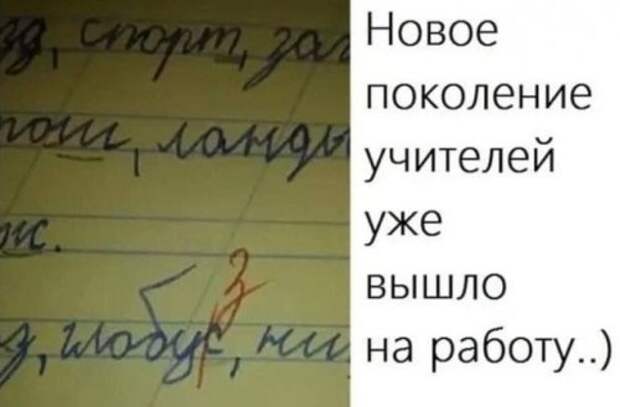 зд, спорт, заг
пош, ланды
ж.
з
з, глобус, ни
Новое
поколение
учителей
уже
вышло
на работу..)